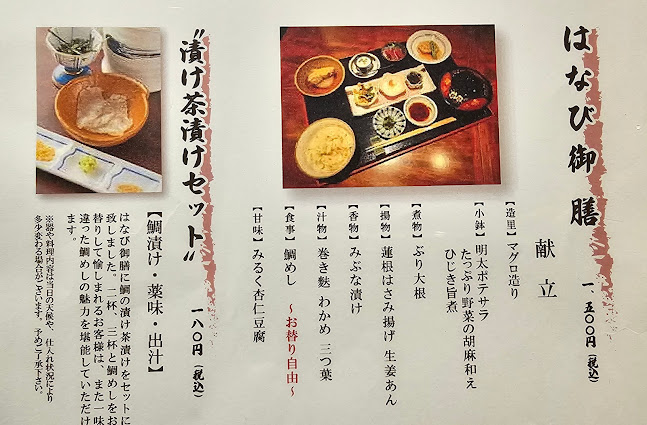 はなび御膳
一、五〇〇円（税込）
献立
【造里】マグロ造り
【小鉢】明太ポテサラ
たっぷり野菜の胡麻和え
ひじき旨煮
【煮物】ぶり大根
【揚物】蓮根はさみ揚げ 生姜あん
【香物】みぶな漬け
【汁物】巻き麩 わかめ 三つ葉
【食事】鯛めし 〜お替り自由〜
【甘味】みるく杏仁豆腐
“漬け茶漬けセット”
一八〇円（税込）
【鯛漬け・薬味・出汁】
はなび御膳に鯛の漬け茶漬けをセットに
致しました。一杯、二杯と鯛めしをお
替りして愉しまれるお客様は、また一味
違った鯛めしの魅力を堪能していただけ
ます。
※器や料理内容は当日の天候や、仕入れ状況により
多少変わる場合がございます。予めご了承下さい。